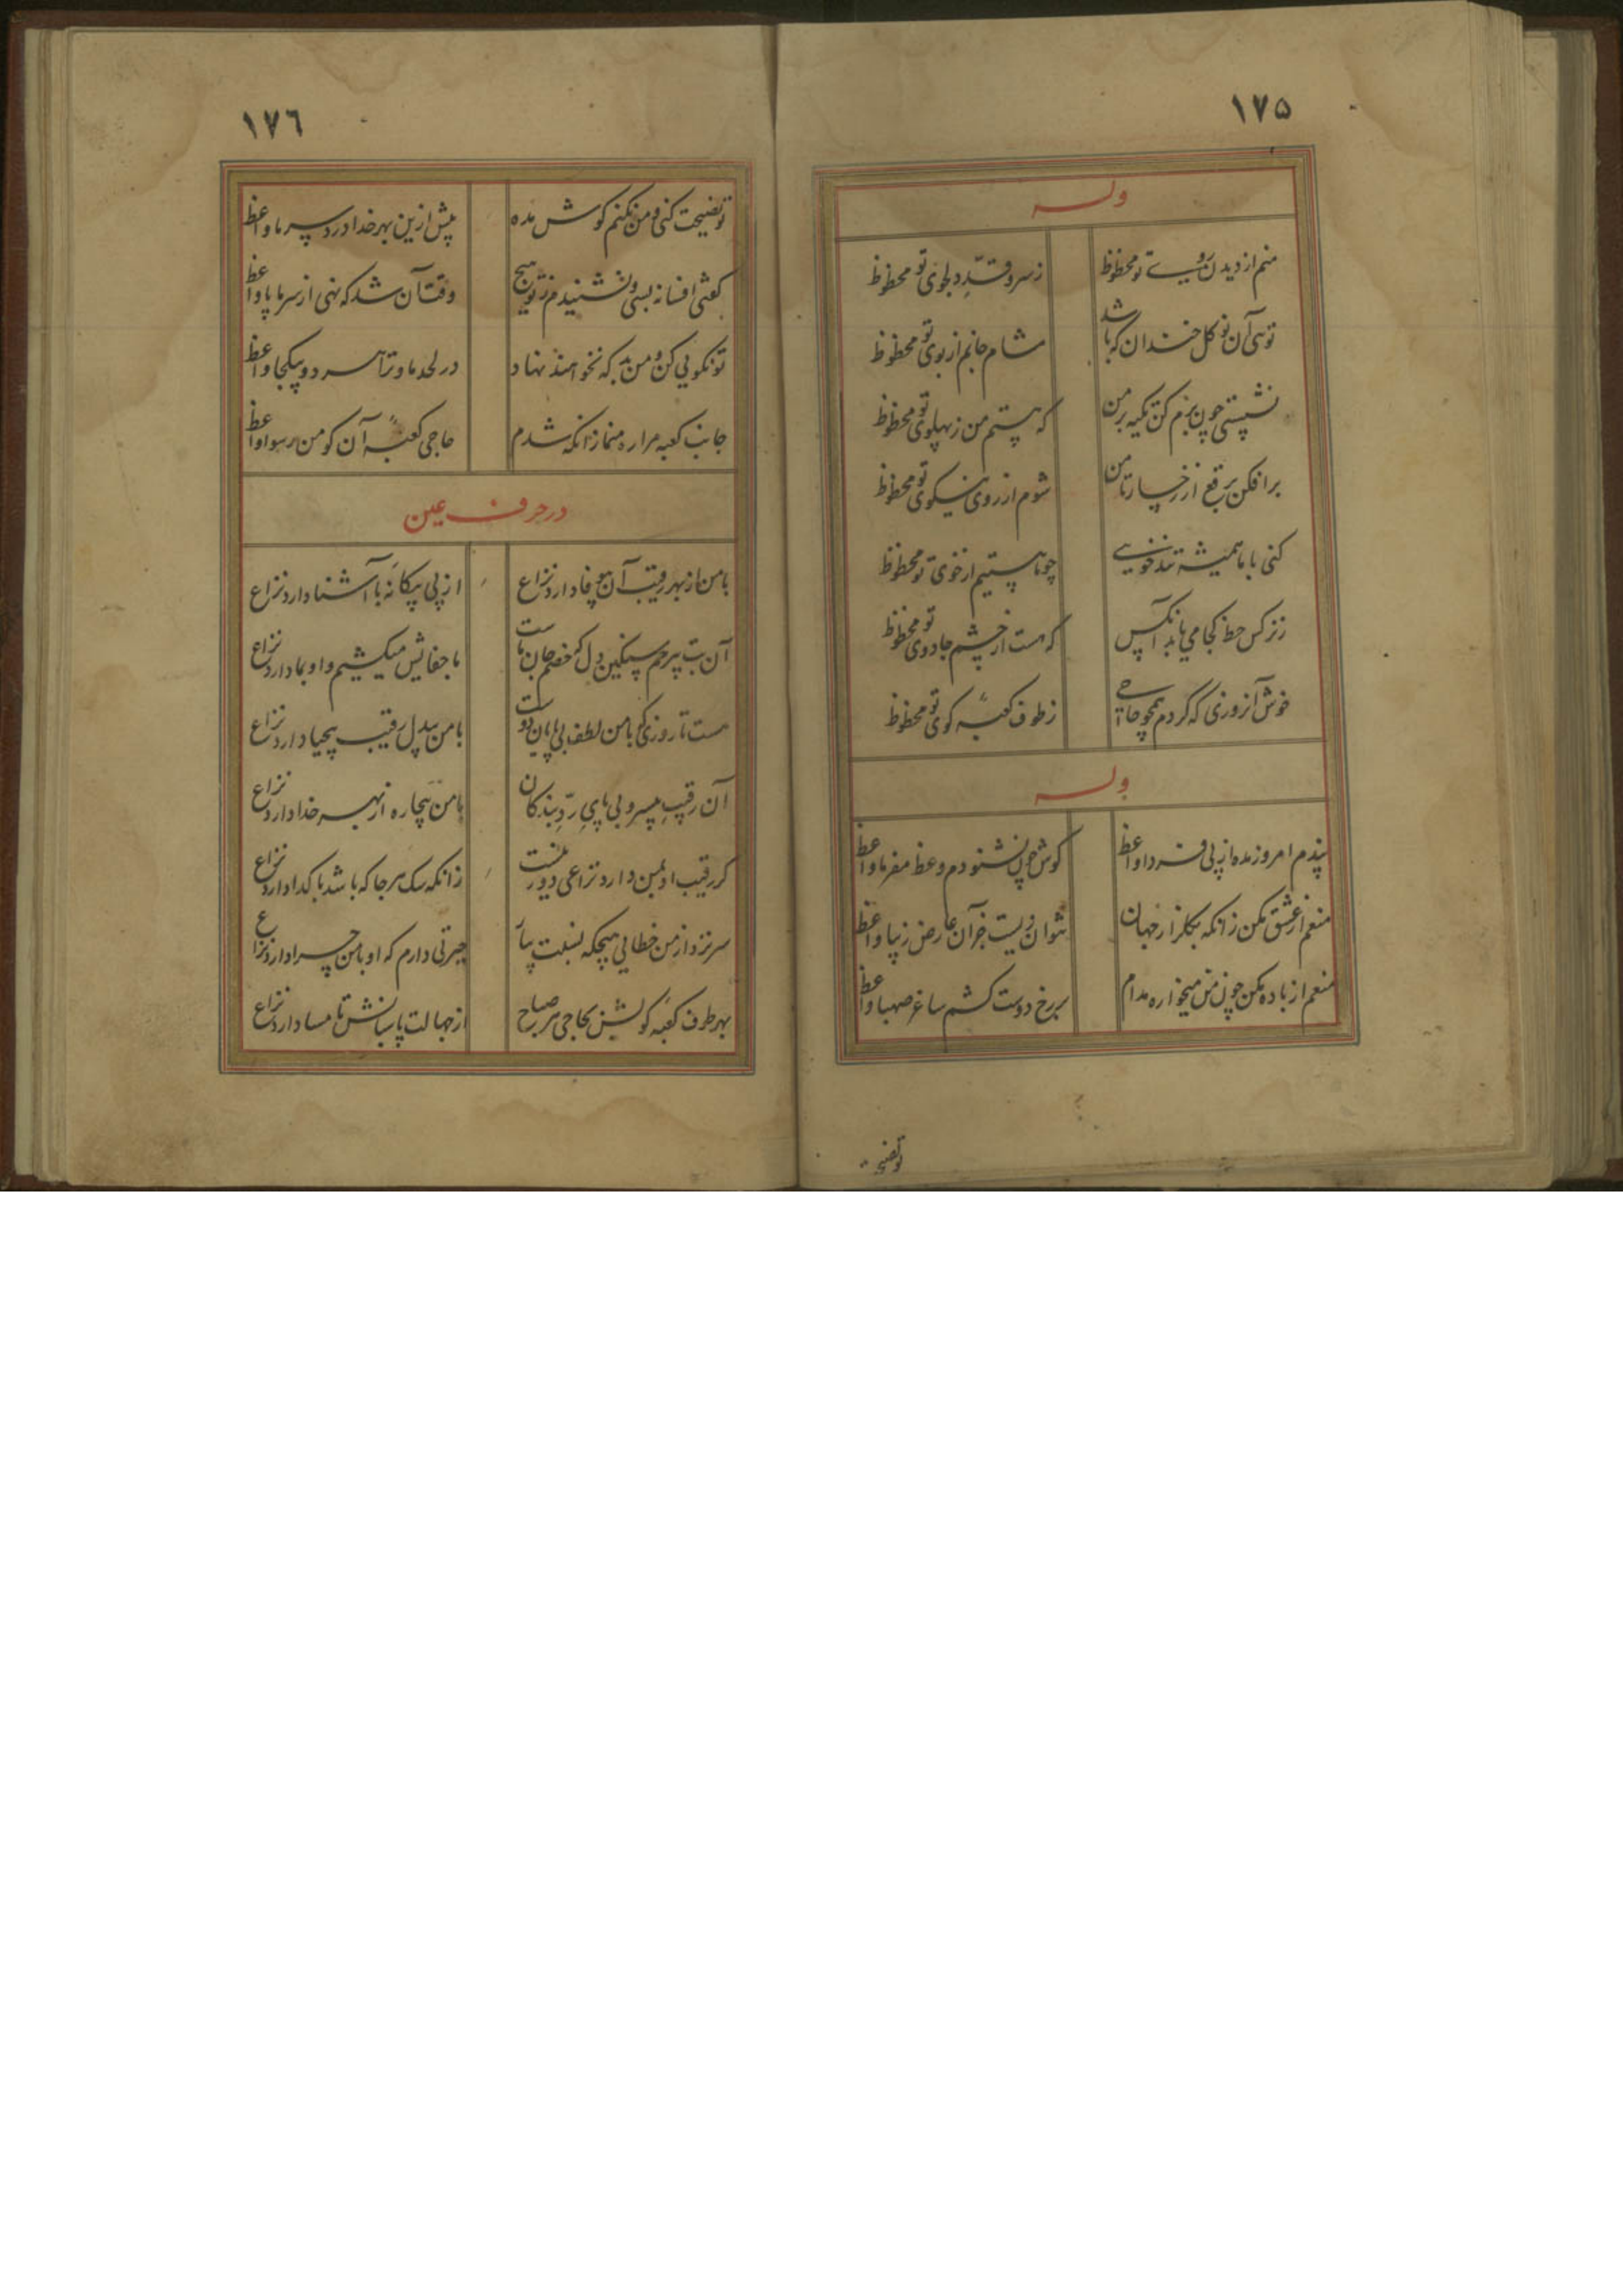 ١٧۵
وله
منم از دیدن روی تو محظوظ زسرو قدّ دلجوی تو محظوظ
توئی آن نوکل خندان که باشد مشام جانم از بوی تو محظوظ
نشستی چون ببزم کن تکیه بر من که هستم من زپهلوی تو محظوظ
برافکن برقع از رخسار تا من شوم از روی نیکوی تو محظوظ
کنی با ما همیشه تندخویی چو ما هستیم از خوی تو محظوظ
زنرکس حظ کجا می یابد آنکس که هست از چشم جادوی تو محظوظ
خوش آنروزی که کردم همچو حاجی زطوف کعبه کوی تو محظوظ
وله
پندم امروز مده از پی فردا واعظ کوش چون نشنودم وعظ مفرما واعظ
منعم از عشق مکن زانکه بکلزار جهان نتوان زیست جز آن عارض زیبا واعظ
منعم از باده مکن چون من میخواره مدام بر رخ دوست کشم ساغر صهبا واعظ
تو نصیحت
١٧٦
تو نصیحت کنی و من نکنم کوش مده پیش ازین بهر خدا دردسر ما واعظ
کفتی افسانه بسی و نشنیدم ز تو هیچ وقت آن شد که نهی از سر ما پا واعظ
تو نکویی کن و من بد که نخواهند نهاد در لحد ما و ترا هر دو بیکجا واعظ
جانب کعبه مرا ره منما زانکه شدم حاجی کعبه آن کو من رسوا واعظ
در حرف عین
با من از بهر رقیب آن بیوفا دارد نزاع از پی بیکانه با آشنا دارد نزاع
آن بت بیرحم سنکین دل که خصم جان ماست ما جفایش میکشیم و او بما دارد نزاع
هست تا روزی که با من لطف بی پایان دوست با من بیدل رقیب بیحیا دارد نزاع
آن رقیب بیسر و بی پای ردّ بندکان با من بیچاره از بهر خدا دارد نزاع
کر رقیب او بمن دارد نزاعی دور نیست زانکه سک هر جا که باشد با کدا دارد نزاع
سر نزد از من خطایی هیچکه نسبت بیار حیرتی دارم که او با من چرا دارد نزاع
بهر طوف کعبه کویش بحاجی هر صباح از جهالت پاسبانش تا مسا دارد نزاع